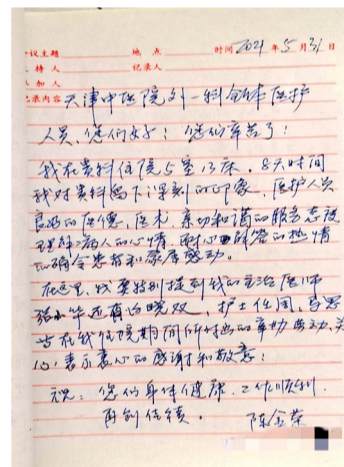 议主题 地点 时间 2021年5月31日
持人 记录人
加人
记录内容 天津中医院外一科全体医护
人员，您们好！您们辛苦了！
我在贵科住院5室13床。8天时间
我对贵科留下深刻的印象，医护人员
良好的医德，医术，亲切和蔼的服务态度
理解病人的心情，耐心解答的热情
的确令患者和家属感动。
在这里，我要特别提到我的主治医师
还有 晓双，护士任周，
与在我住院期间所付出的辛勤劳动，关
心，表示衷心的感谢和敬意！
祝：您们身体健康，工作顺利，
再创佳绩。
陈金荣